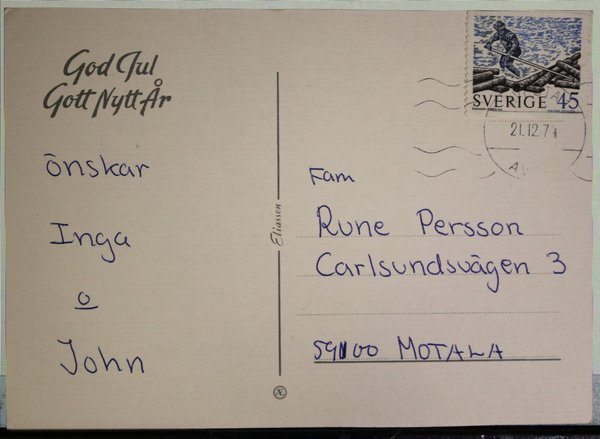 God Jul
Gott Nytt År
önskar
Inga
o
John
Eliasson
Æ
SVERIGE 45
21.12.71
Fam
Rune Persson
Carlsundsvägen 3
59100 MOTALA